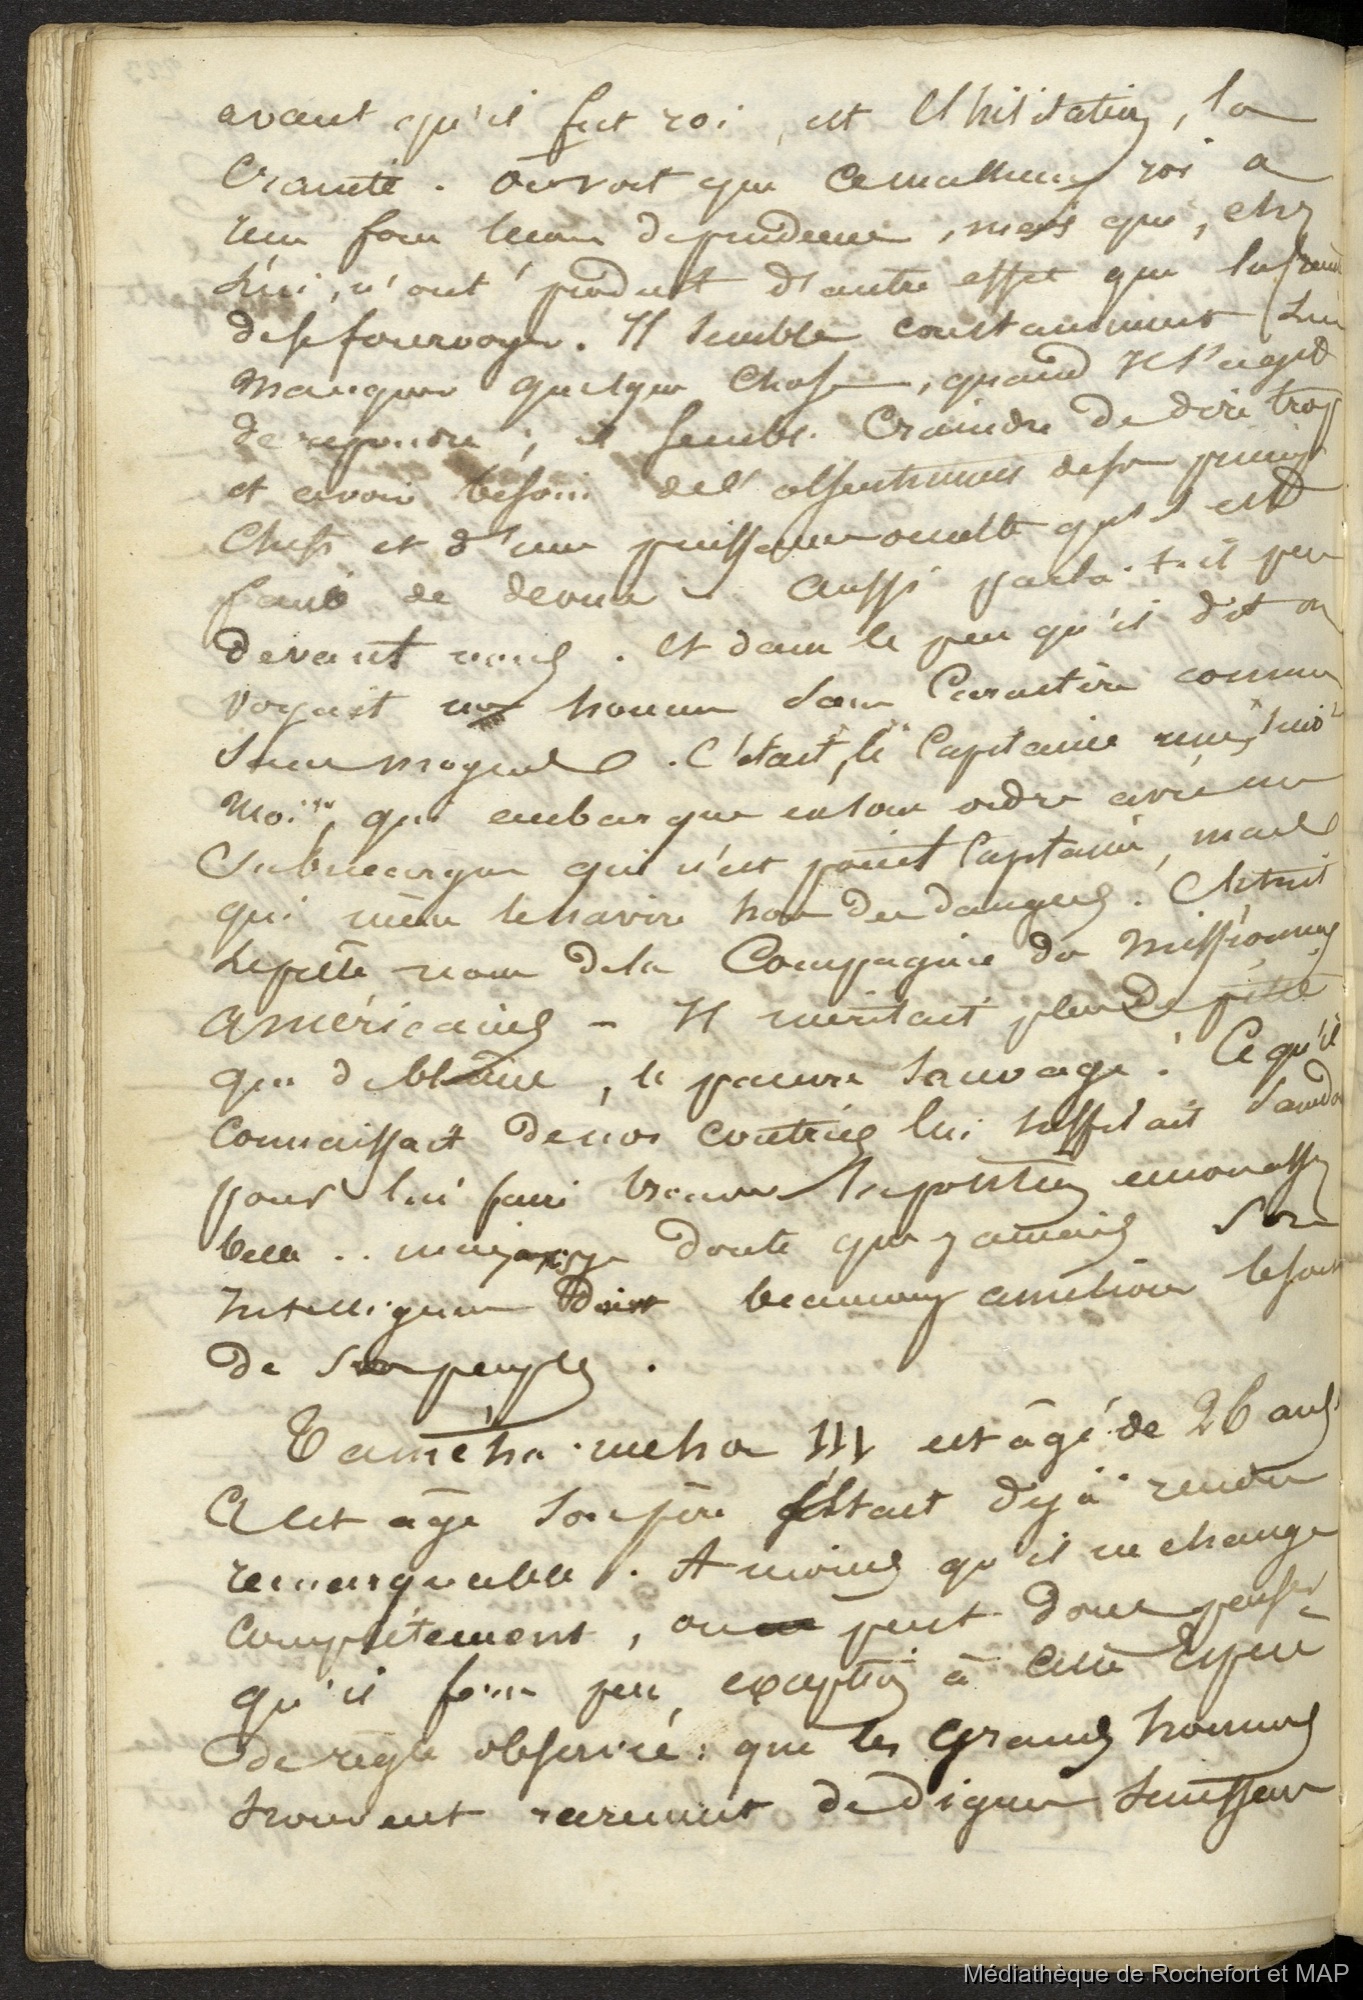 avant qu'il fut roi, est l'hésitation, la
crainte. On voit que ce malheureux roi a
reçu force leçons de prudence, mais que, chez
lui, n'ont produit d'autre effet que la crainte
de se fourvoyer. Il semble constamment lui
manquer quelque chose, quand il s'agit
de repondre; il semble craindre de dire trop
et avoir besoin de l'assentiment de son premier
Chefs et d'une puissance occulte qu'il est
de deviner. Aussi parla-t-il peu
devant nous. Et dans le peu qu'il dit on
voyait un homme sans Caractère comme
sans moyens. C'était, le Capitaine
qui embarque en sous ordre avec un
Subrecargue qui n'est point Capitaine, mais
qui mène le navire hors des dangers. C'était
le petit nom de la Compagnie de Missionnaires
américains - Il méritait plus de pitié
que de blâme, le pauvre sauvage! Ce qu'il
connaissait de nos contrées lui suffisait sans doute
pour lui faire trouver sa position encore assez
belle .. mais je doute que jamais son
intelligence beaucoup améliore le sort
de son peuple.
Taméha-meha III est âgé de 26 ans.
A cet âge son père s'était déjà rendu
remarquable. A moins qu'il ne change
complètement, on peut donc penser
qu'il fera peu exception à cette espèce
de règle observée: que les Grands hommes
trouvent rarement de dignes successeurs
Médiathèque de Rochefort et MAP